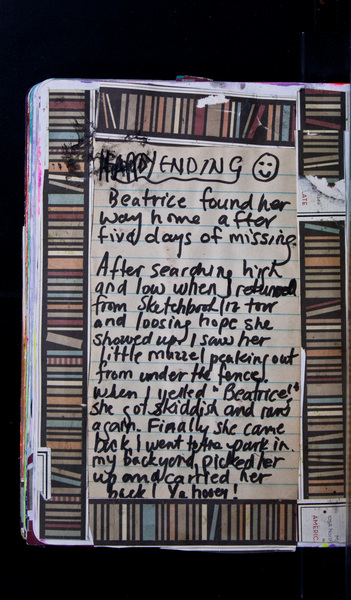 HAPPY ENDING
Beatrice found her
way home after
five days of missing.
After searching high
and low when I returned
from Sketchbook tour
and loosing hope she
showed up! I saw her
little muzzel peaking out
from under the fence!
when I yelled "Beatrice!"
she got skiddish and ran
again. Finally she came
back. I went to the park in
my backyard, picked her
up and carried her
back! Yahooey!
LATE
AMERIC